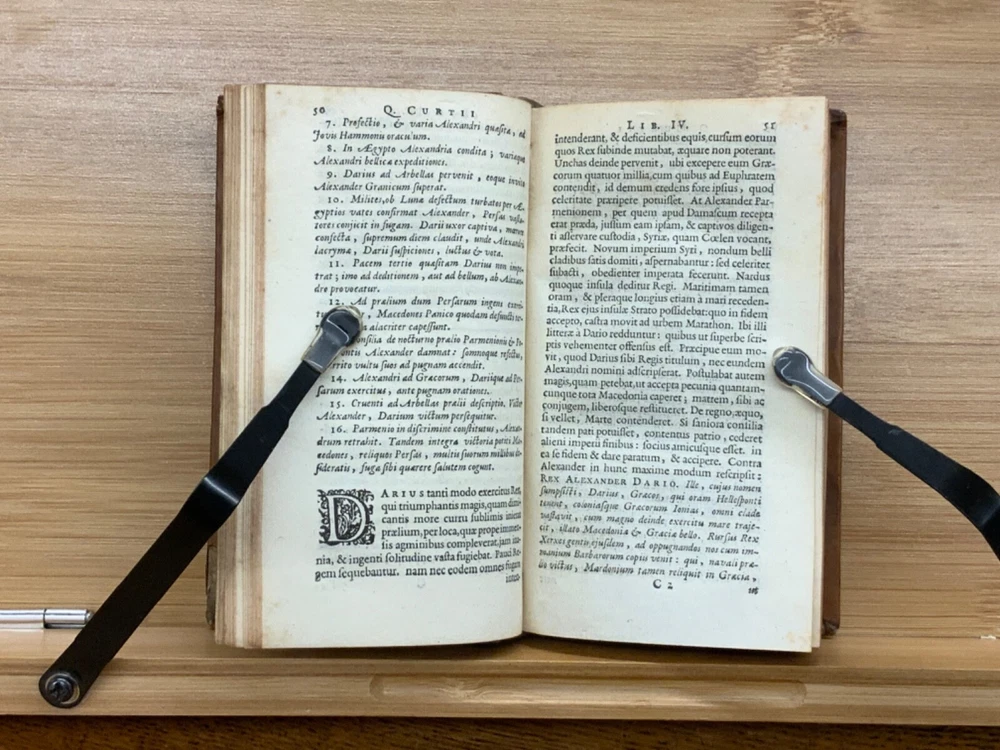 50 Q. CURTII
7. Profectio, & varia Alexandri quæsita, ad
Jovis Hammonis oraculum.
8. In Ægypto Alexandria condita; variæque
Alexandri bellicæ expeditiones.
9. Darius ad Arbellas pervenit, eoque invito
Alexander Granicum superat.
10. Milites, ob Lunæ defectum turbatos per Æ-
gyptios vates confirmat Alexander, Persas vasta-
tores conjicit in fugam. Darii uxor captiva, mærore
confecta, supremum diem claudit, unde Alexandri
lacrymæ, Darii suspiciones, luctus & vota.
11. Pacem tertio quæsitam Darius non impe-
trat; imo ad deditionem, aut ad bellum, ab Alexan-
dro provocatur.
12. Ad prælium dum Persarum ingens exerci-
, Macedones Panico quodam defuncti
alacriter capessunt.
onsilia de nocturno prælio Parmenionis & Po-
ontis Alexander damnat: somnoque refectus,
erecto vultu suos ad pugnam accendit.
14. Alexandri ad Græcorum, Dariique ad Per-
sarum exercitus, ante pugnam orationes.
15. Cruenti ad Arbellas prælii descriptio. Victor
Alexander, Darium victum persequitur.
16. Parmenio in discrimine constitutus, Alexan-
drum retrahit. Tandem integra victoria potiti Ma-
cedones, reliquos Persas, multis suorum millibus de-
sideratis, fuga sibi quærere salutem cogunt.
DARIUS tanti modo exercitus Rex,
qui triumphantis magis, quam dimi-
cantis more curru sublimis inierat
prælium, per loca, quæ prope immen-
sis agminibus compleverat, jam ina-
nia, & ingenti solitudine vasta fugiebat. Pauci Re-
gem sequebantur. nam nec eodem omnes fugam
inten-
LIB. IV. 51
intenderant, & deficientibus equis cursum eorum
quos Rex subinde mutabat, æquare non poterant.
Unchas deinde pervenit, ubi excepere eum Græ-
corum quatuor millia, cum quibus ad Euphratem
contendit, id demum credens fore ipsius, quod
celeritate præripere potuisset. At Alexander Par-
menionem, per quem apud Damascum recepta
erat præda, jussum eam ipsam, & captivos diligen-
ti asservare custodia, Syriæ, quam Cœlen vocant,
præfecit. Novum imperium Syri, nondum belli
cladibus satis domiti, aspernabantur: sed celeriter
subacti, obedienter imperata fecerunt. Nardus
quoque insula deditur Regi. Maritimam tamen
oram, & pleraque longius etiam à mari receden-
tia, Rex ejus insulæ Strato possidebat: quo in fidem
accepto, castra movit ad urbem Marathon. Ibi illi
litteræ à Dario redduntur: quibus ut superbe scri-
ptis vehementer offensus est. Præcipue eum mo-
vit, quod Darius sibi Regis titulum, nec eundem
Alexandri nomini adscripserat. Postulabat autem
magis, quam petebat, ut accepta pecunia quantam-
cunque tota Macedonia caperet; matrem, sibi ac
conjugem, liberosque restitueret. De regno, æquo,
si vellet, Marte contenderet. Si saniora consilia
tandem pati potuisset, contentus patrio, cederet
alieni imperii finibus: socius amicusque esset. in
ea se fidem & dare paratum, & accipere. Contra
Alexander in hunc maxime modum rescripsit:
REX ALEXANDER DARIO. Ille, cujus nomen
sumpsisti, Darius, Græcos, qui oram Hellesponti
tenent, coloniasque Græcorum Ionias, omni clade
vastavit, cum magno deinde exercitu mare traje-
cit, illato Macedoniæ & Græciæ bello. Rursus Rex
Xerxes gentis ejusdem, ad oppugnandos nos cum im-
manium Barbarorum copiis venit: qui, navali præ-
lio victus, Mardonium tamen reliquit in Græcia,
C 2